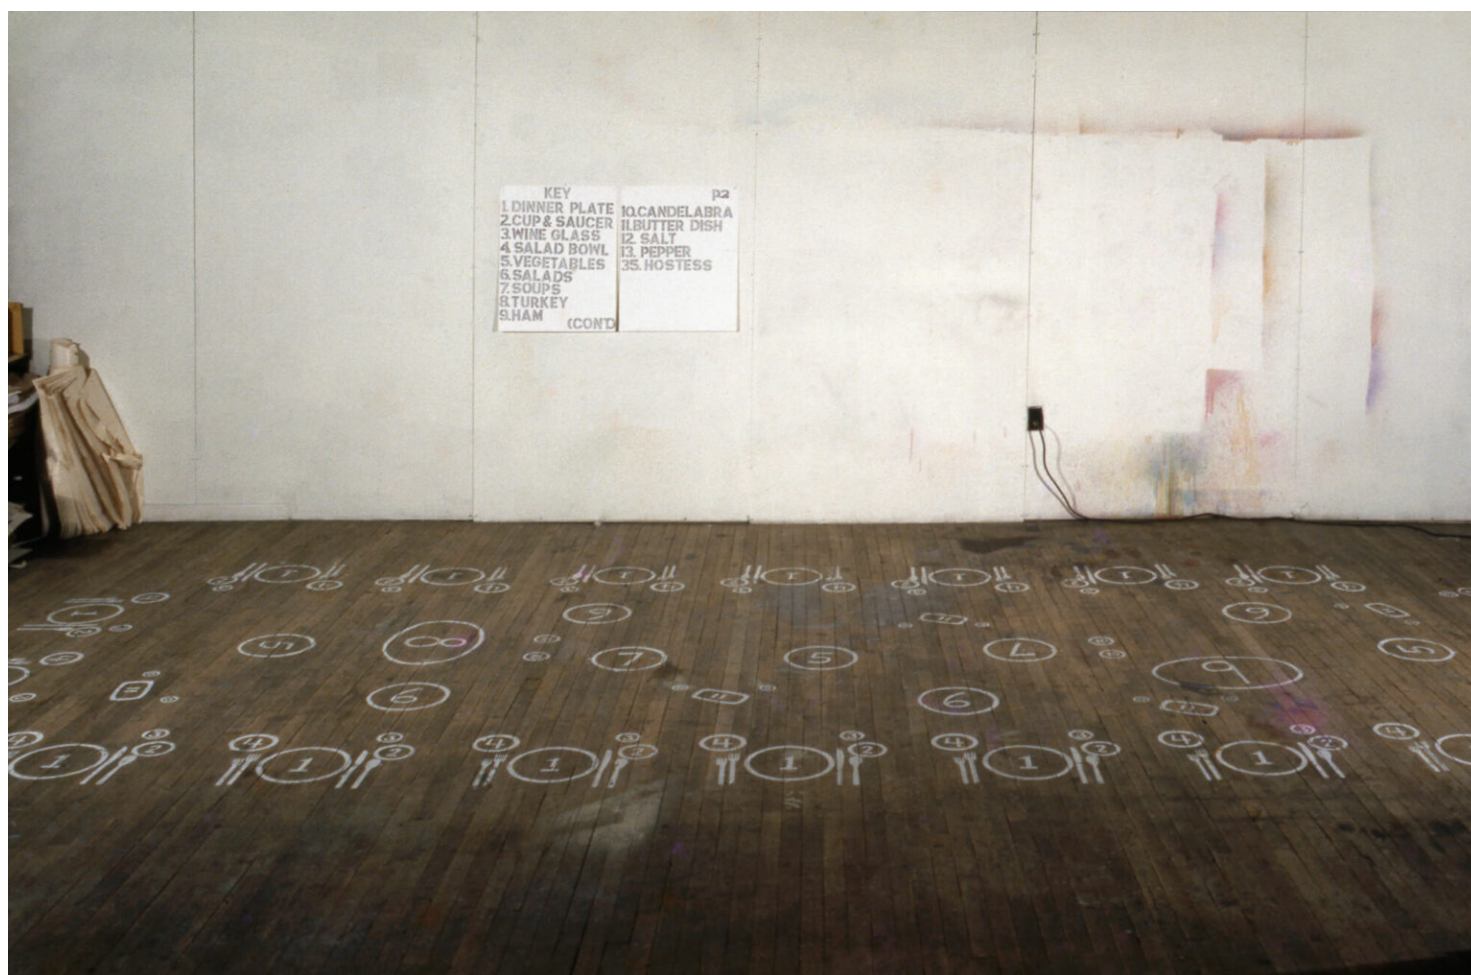 KEY
1. DINNER PLATE
2. CUP & SAUCER
3. WINE GLASS
4. SALAD BOWL
5. VEGETABLES
6. SALADS
7. SOUPS
8. TURKEY
9. HAM
(CONT'D
p2
10. CANDELABRA
11. BUTTER DISH
12. SALT
13. PEPPER
35. HOSTESS
1 1 1 1 1 1 1
1
6 11 6 11
5 8 7 5 7 9 5
11 6 11 6 11
4 3 4 3 4 3 4 3 4 3 4 3 4
1 2 1 2 1 2 1 2 1 2 1 2